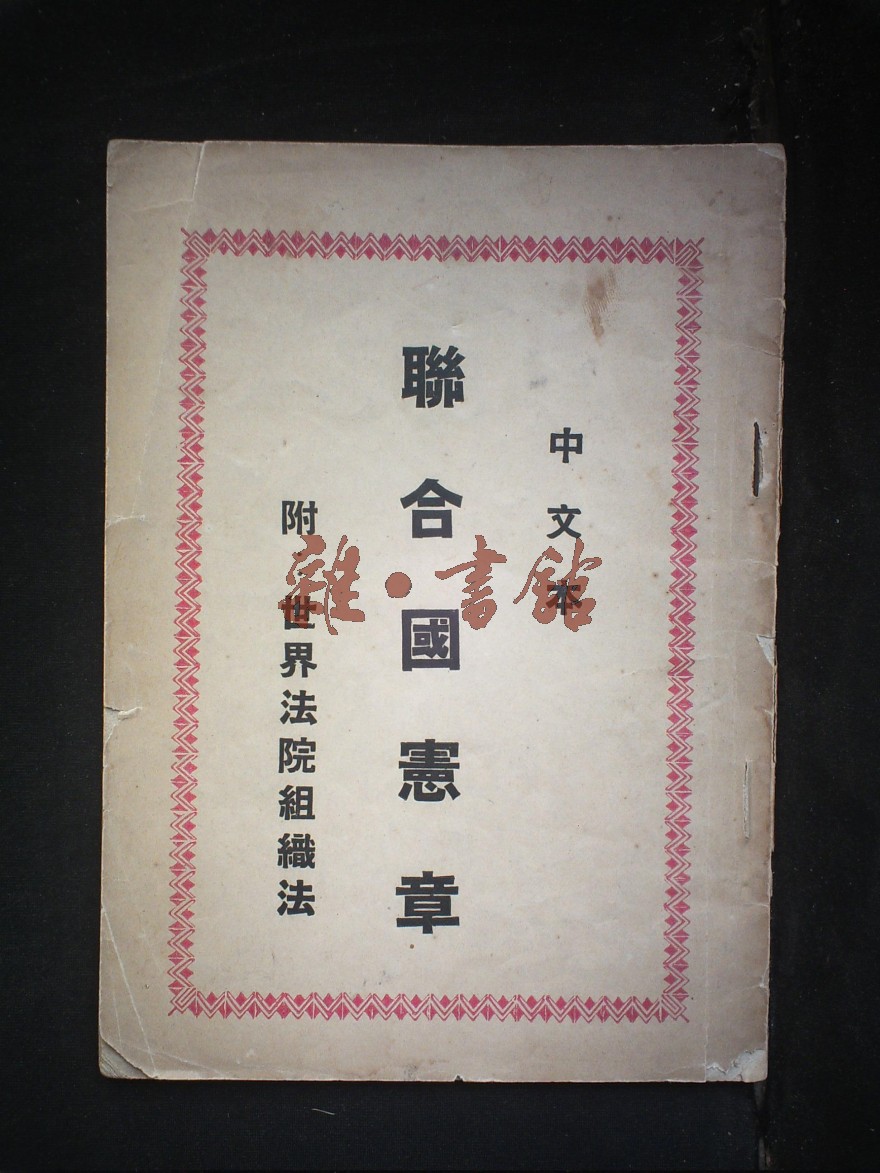 中文本
聯合國憲章
附：世界法院組織法
雜·書館